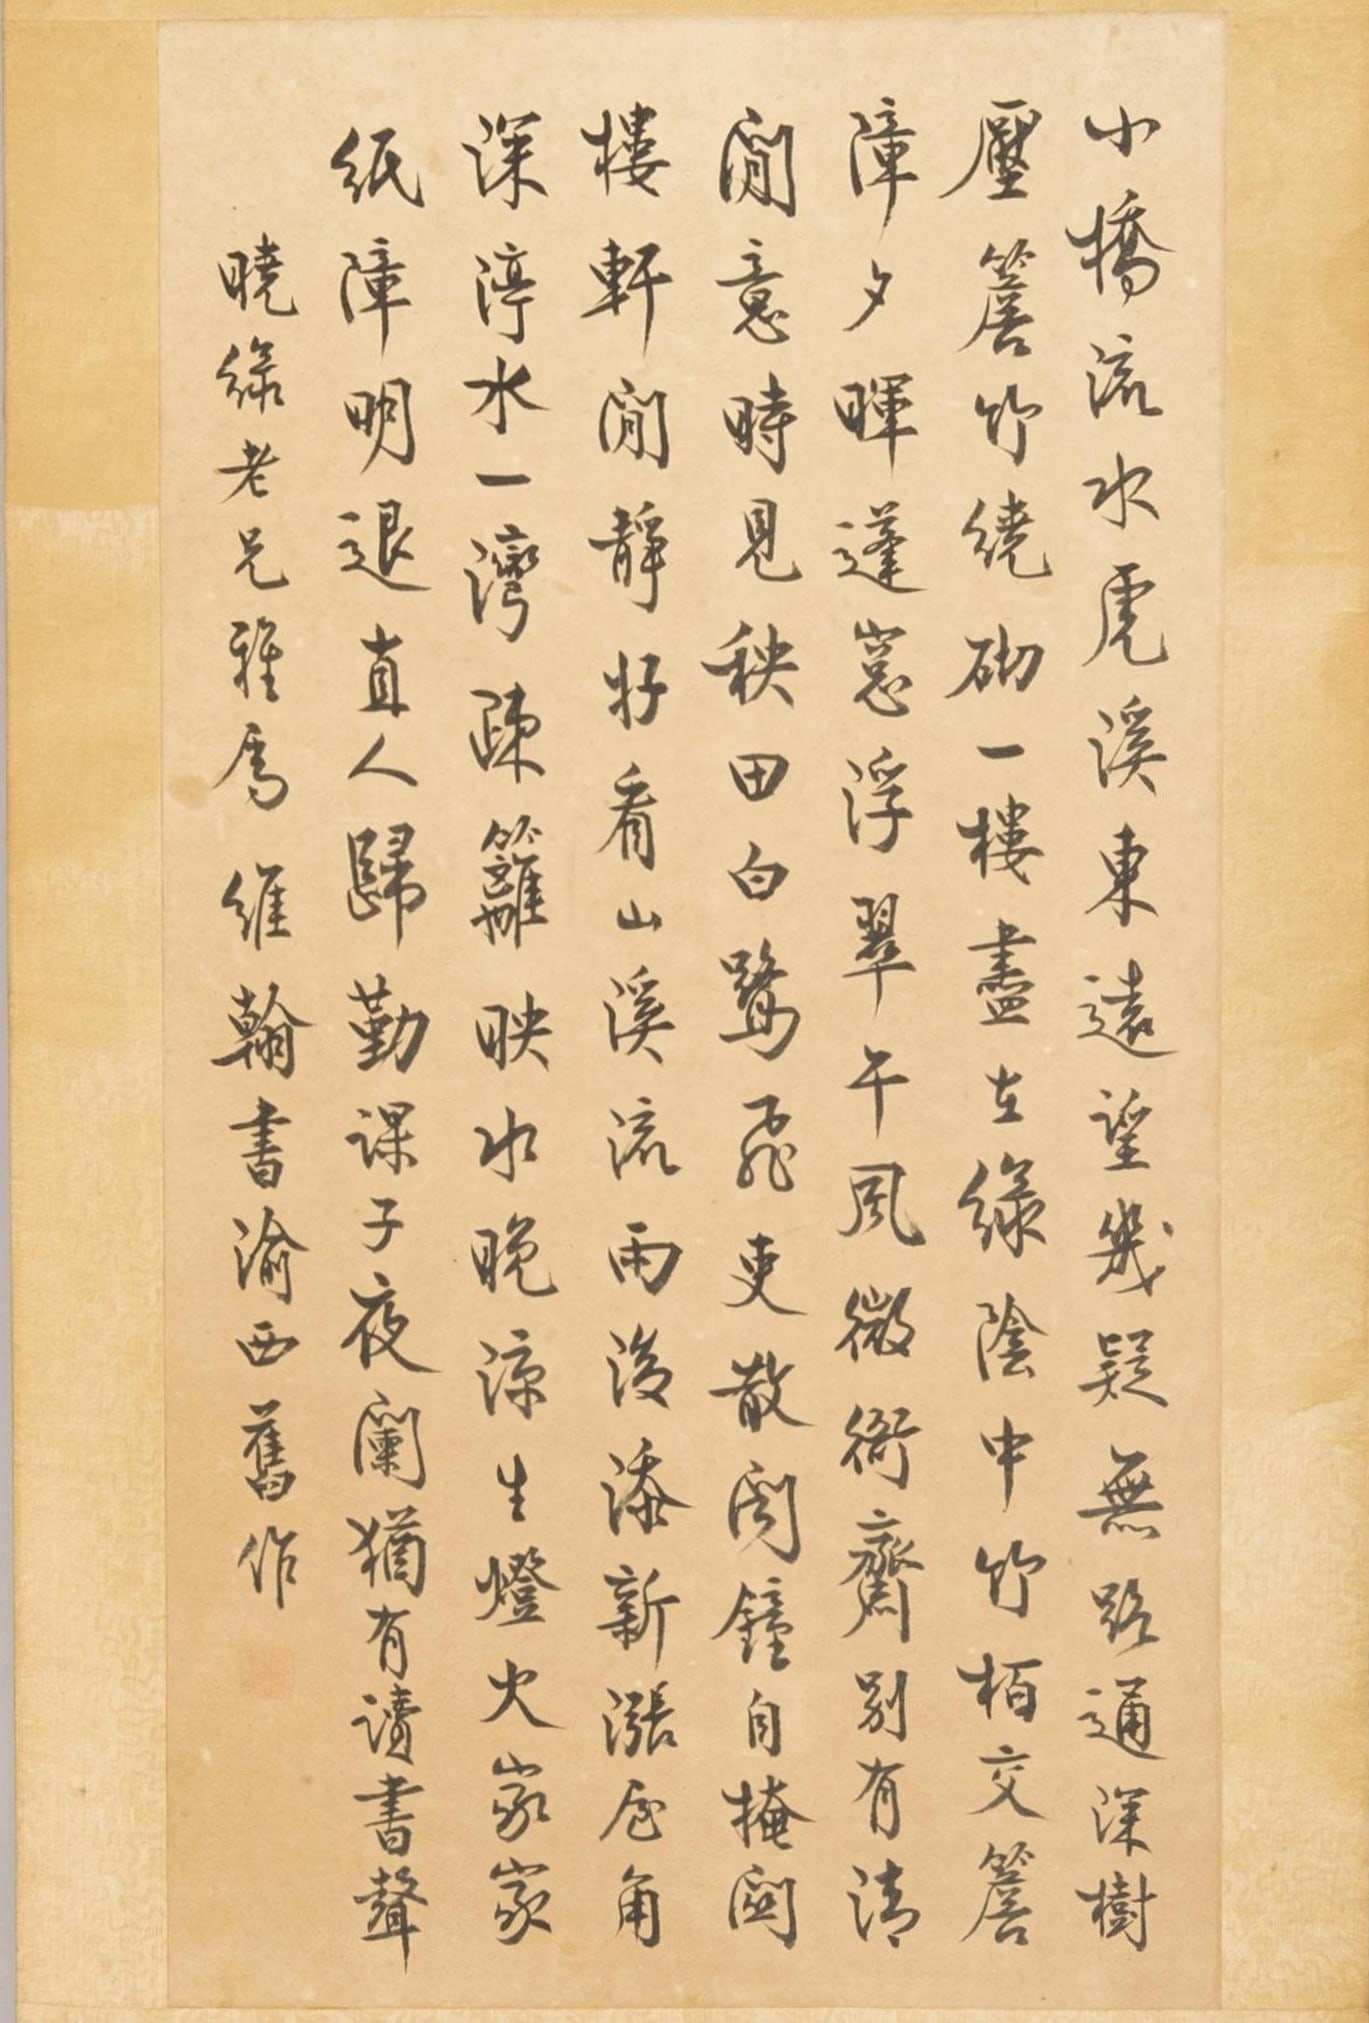 小橋流水虎溪東遠望幾疑無路通深樹
壓簷竹繞砌一樓盡在綠陰中竹栢交簷
障夕暉蓬窓浮翠午風微衙齋別有清
閒意時見秧田白鷺飛吏散閣鐘自掩關
樓軒閒靜好看山溪流雨後添新漲屋角
深渟水一灣疎籬映水晚涼生燈火家家
紙障明退直人歸勤課子夜闌猶有讀書聲
曉綠老兄雅屬 維翰書渝西舊作